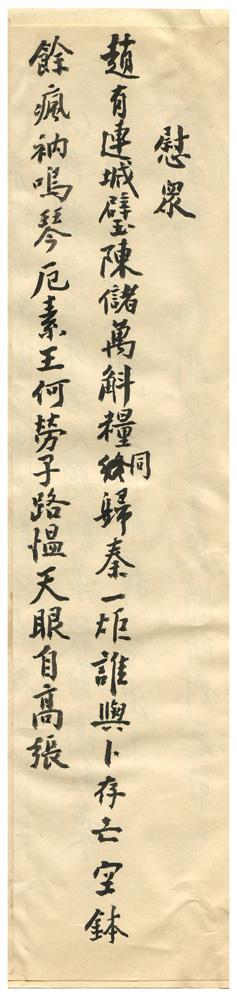 慰眾
趙有連城璧玉陳儲萬斛糧終同歸秦一炬誰與卜存亡空鉢
餘瘋衲嗚琴厄素王何勞子路慍天眼自高張